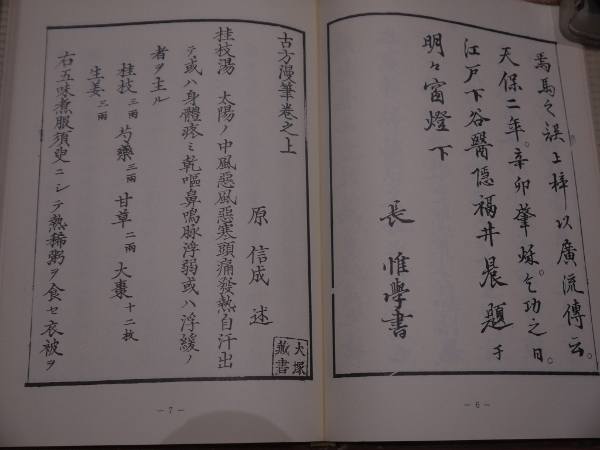 焉馬之誤上梓以廣流傳云。
天保二年。辛卯肇秌。乞功之日。
江戸下谷醫隱福井晨題于
明々窗燈下
長惟學書
— 6 —
古方漫筆卷之上
原信成述
大塚藏書
桂枝湯 太陽ノ中風惡風惡寒頭痛發熱自汗出
テ或ハ身體疼ミ乾嘔鼻鳴脉浮弱或ハ浮緩ノ
者ヲ主ル
桂枝三兩 芍藥三兩 甘草二兩 大棗十二枚
生姜三兩
右五味煮服須臾ニシテ熱稀粥ヲ食セ衣被ヲ
— 7 —